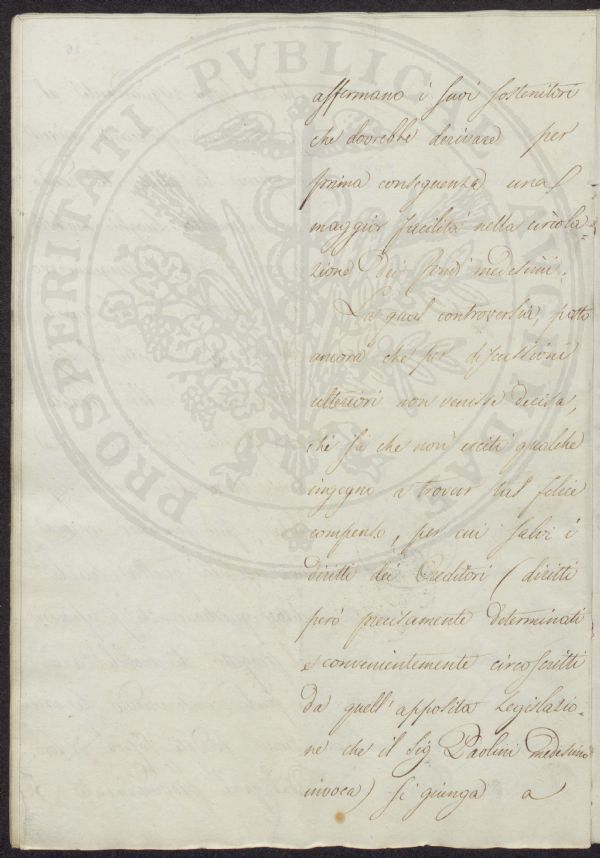 affermano i suoi sostenitori
che dovrebbe derivare per
prima conseguenza una
maggior facilità nella circola-
zione dei fondi medesimi.
La qual controversia, posto
ancora che per discussioni
ulteriori non venisse decisa,
chi sa che non ecciti qualche
ingegno a trovar tal felice
compenso, per cui salvi i
diritti dei Creditori (diritti
però precisamente determinati
e convenientemente circoscritti
da quell'apposita Legislazio-
ne che il Sig Paolini medesimo
invoca) si giunga a
PROSPERITATI PVBLICAE AVGENDAE